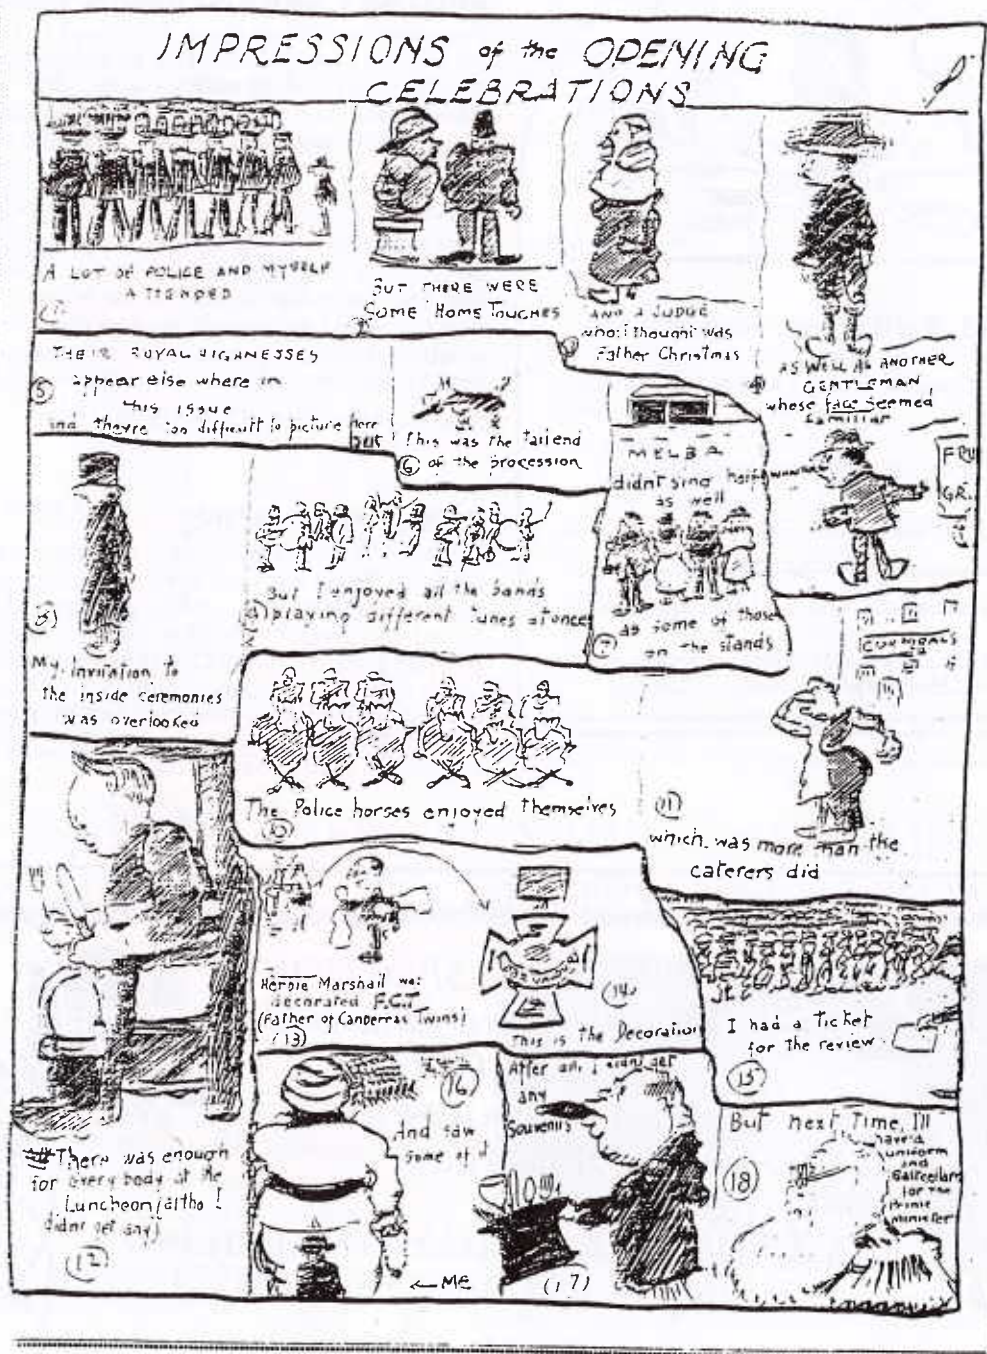 IMPRESSIONS of the OPENING
CELEBRATIONS
A LOT OF POLICE AND MYSELF
ATTENDED
BUT THERE WERE
SOME HOME TOUCHES
AND A JUDGE
who I thought was
Father Christmas
AS WELL AS ANOTHER
GENTLEMAN,
whose face seemed
familiar
FRU
GR.
THEIR ROYAL HIGHNESSES
5
appear else where in
this issue
and theyre too difficult to picture here
This was the tail end
6 of the procession
MELBA
didn't sing half
as well
as some of those
7
on the stands
8
My Invitation to
the inside ceremonies
was overlooked
But I enjoyed all the bands
playing different tunes at once
The Police horses enjoyed themselves
10
11
which was more than the
caterers did
There was enough
for every body at the
Luncheon (altho I
didnt get any)
12
Herbie Marshall was
decorated F.C.T
(Father of Canberras Twins)
(13)
14
This is the Decoration
I had a ticket
for the review
15
16
And saw
some of it
← ME
After all, I didn't get
any
Souvenirs
(17)
But next Time, I'll
have a
uniform
and
for the
Prime
Minister
18